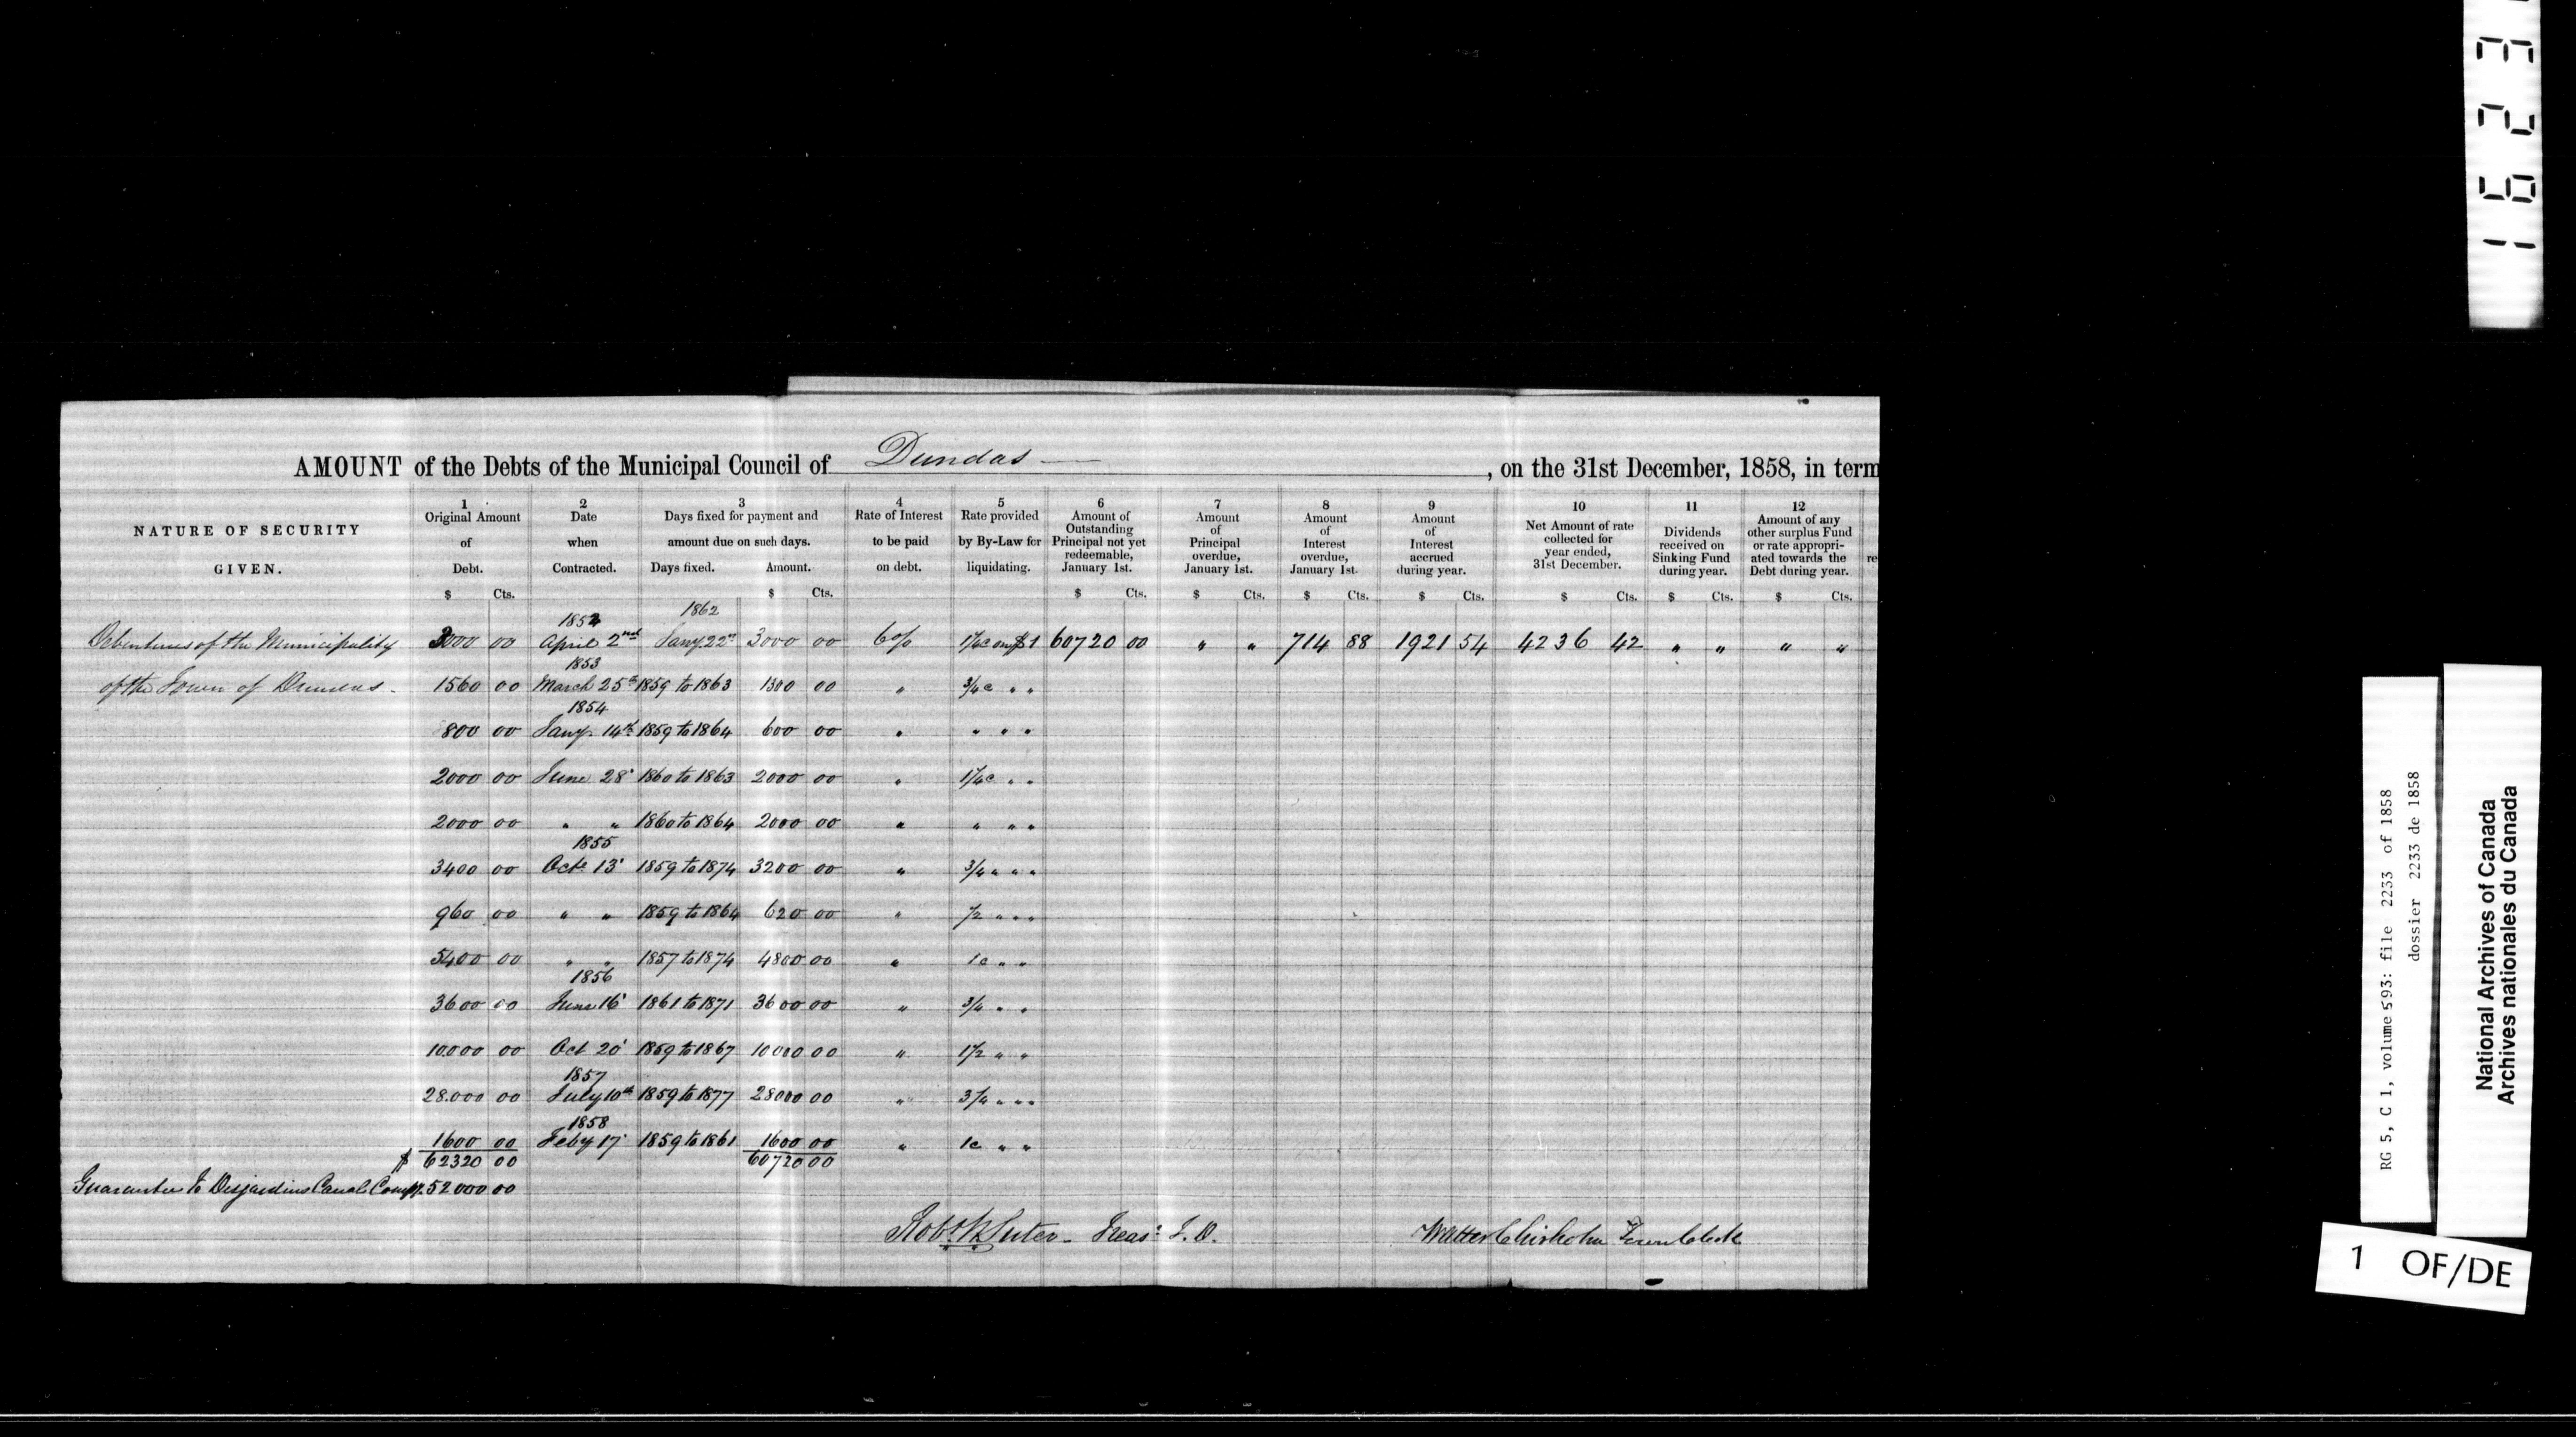 AMOUNT of the Debts of the Municipal Council of Dundas, on the 31st December, 1858, in term
NATURE OF SECURITY GIVEN.
1 Original Amount of Debt.
2 Date when Contracted.
3 Days fixed for payment and amount due on such days.
Days fixed. Amount.
4 Rate of Interest to be paid on debt.
5 Rate provided by By-Law for liquidating.
6 Amount of Outstanding Principal not yet redeemable, January 1st.
7 Amount of Principal overdue, January 1st.
8 Amount of Interest overdue, January 1st.
9 Amount of Interest accrued during year.
10 Net Amount of rate collected for year ended, 31st December.
11 Dividends received on Sinking Fund during year.
12 Amount of any other surplus Fund or rate appropriated towards the Debt during year.
re
$ Cts. $ Cts. $ Cts. $ Cts. $ Cts. $ Cts. $ Cts. $ Cts. $ Cts.
1862
Debentures of the Municipality 3000 00 April 2nd Jany 22 3000 00 6 o/o 1 1/4 c on $1 60720 00 " " 714 88 1921 54 4236 42 " " " "
1853
of the Town of Dundas - 1560 00 March 25th 1859 to 1863 1300 00 " 3/4 c " "
1854
800 00 Jany 14th 1859 to 1864 600 00 " " " "
2000 00 June 28' 1860 to 1863 2000 00 " 1 1/4 c " "
2000 00 " " 1860 to 1864 2000 00 " " " "
1855
3400 00 Oct. 13' 1859 to 1874 3200 00 " 3/4 " " "
960 00 " " 1859 to 1864 620 00 " 1/2 " " "
5400 00 " " 1857 to 1874 4800 00 " 1c " "
1856
3600 00 June 16' 1861 to 1871 3600 00 " 3/4 " "
10.000 00 Oct 20' 1859 to 1867 10000 00 " 1 1/2 " "
1857
28.000 00 July 10th 1859 to 1877 28000 00 " 3 1/4 " " "
1858
1600 00 Feby 17' 1859 to 1861 1600 00 " 1c " "
$ 62320 00 60720 00
Guarantee to Desjardins Canal Compy. 52000 00
Robt. Suter - Treas. T. D.
Walter Chisholm Town Clerk
1623
RG 5, C 1, volume 593: file 2233 of 1858
dossier 2233 de 1858
National Archives of Canada
Archives nationales du Canada
1 OF/DE